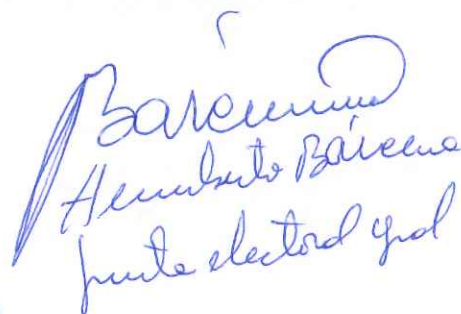 Humberto Bárcena
junta electoral gral